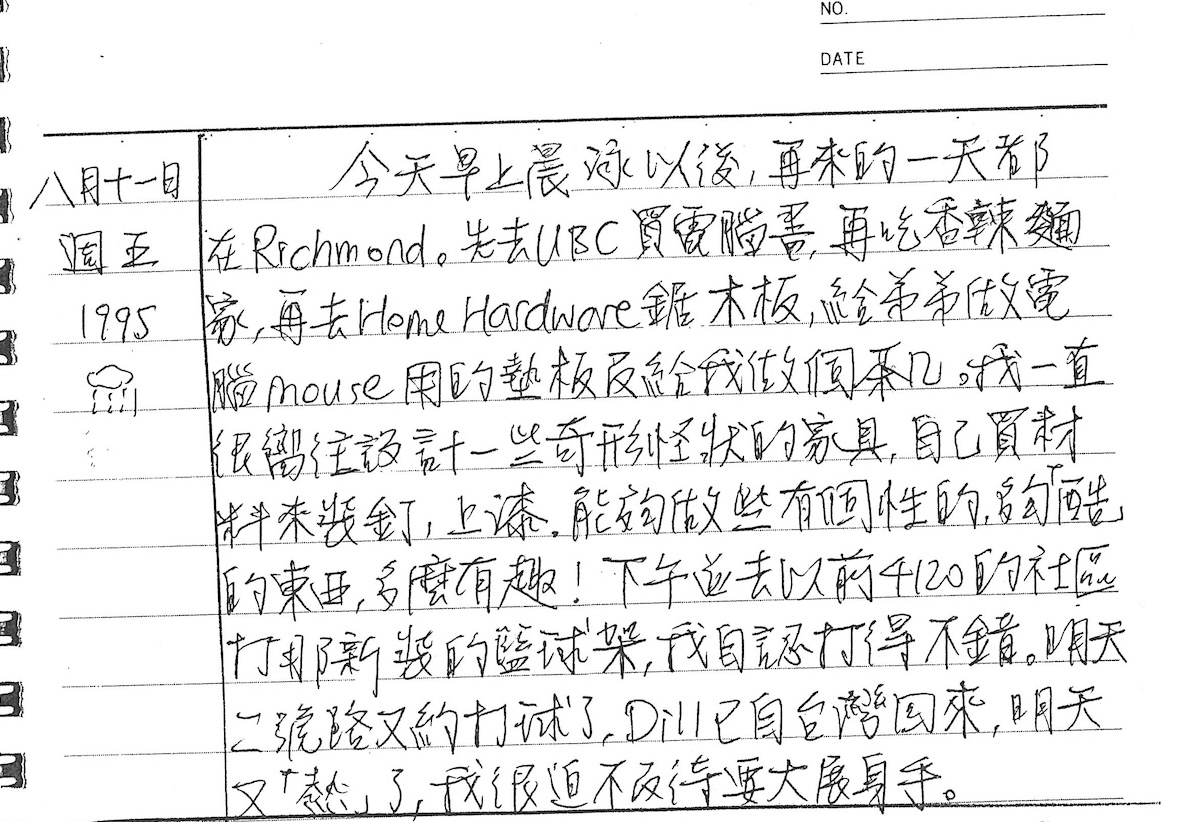 NO.
DATE
八月十一日
週五
1995
今天早上晨泳以後，再來的一天都
在Richmond。先去UBC買電腦書，再吃香辣麵
家，再去Home Hardware鋸木板，給弟弟做電
腦mouse用的墊板及給我做個茶几。我一直
很嚮往設計一些奇形怪狀的家具，自己買材
料來裝釘，上漆。能夠做些有個性的，夠「酷」
的東西，多麼有趣！下午並去以前4120的社區
打那新裝的籃球架，我自認打得不錯。明天
二號路又約打球了，Dill已自台灣回來，明天
又「熱」了，我很迫不及待要大展身手。